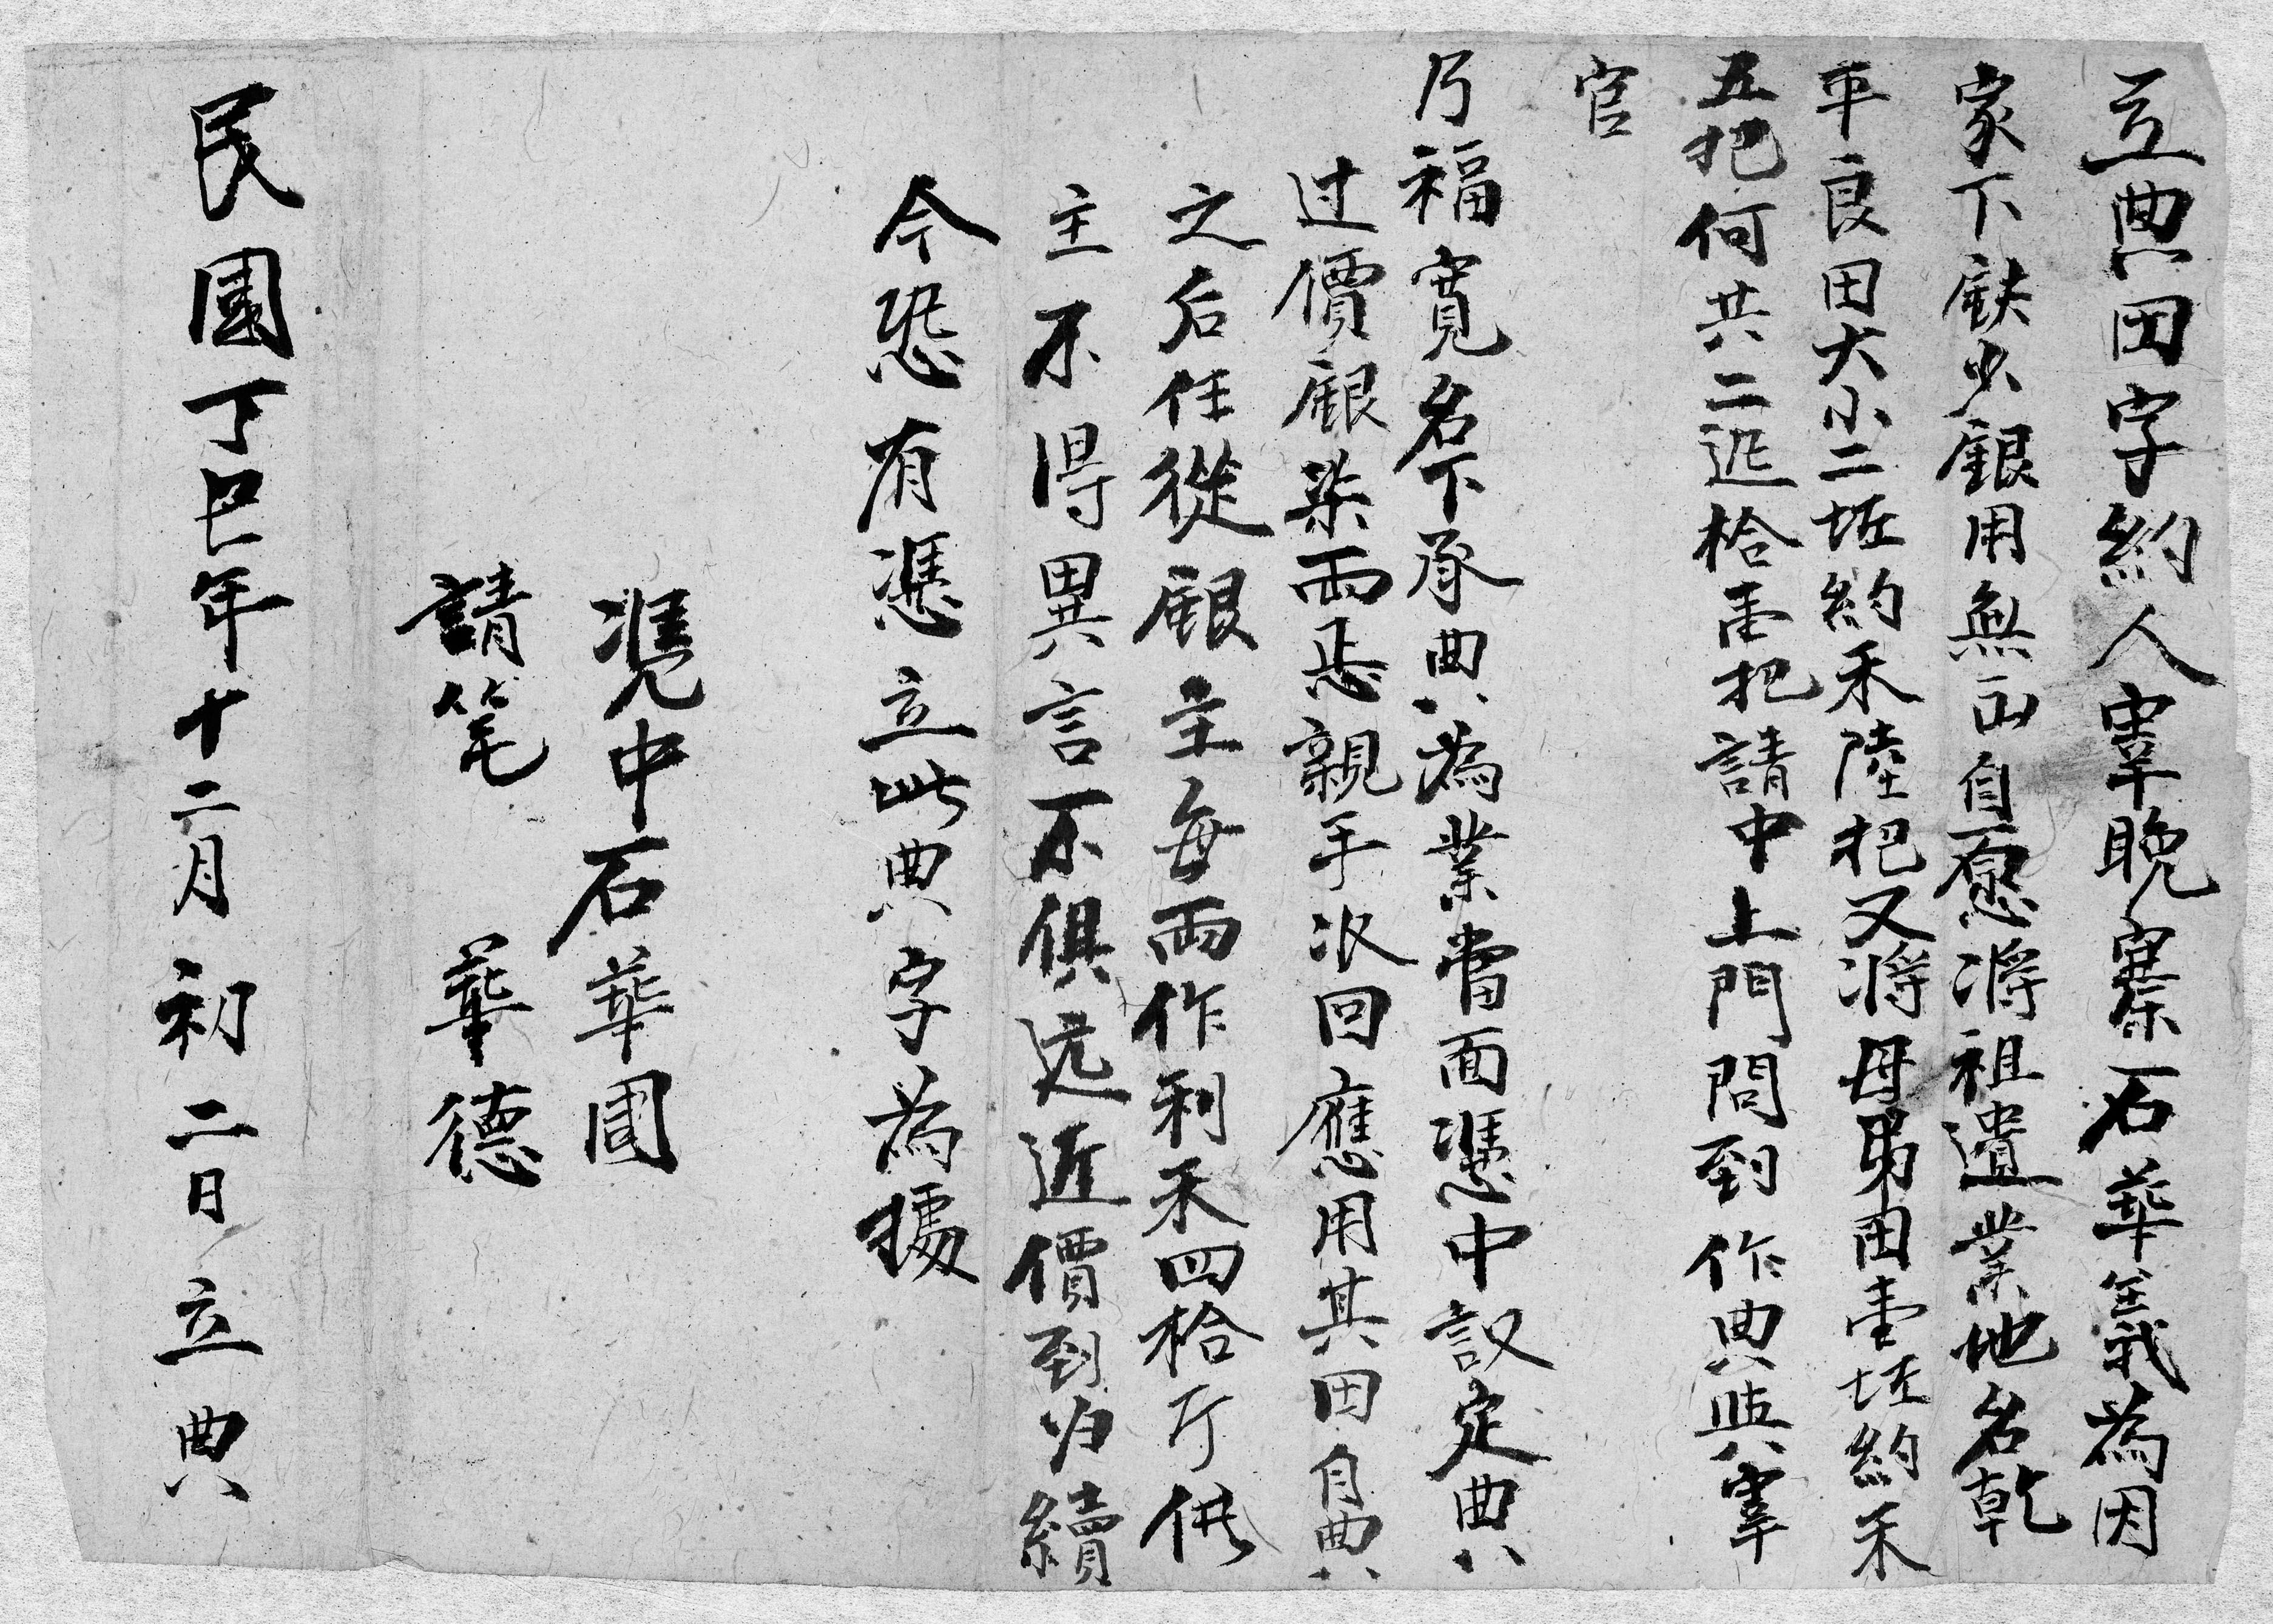 立典田字約人寨晚寨石華義為因
家下缺少銀用無出自愿將祖遺業地名乾
平良田大小二坵約禾陸把又將母弟田壹坵約禾
五把何共二坵拾壹把請中上門問到作典與寨
官
乃福寬名下承典為業當面憑中議定典
过價銀柒両正親手收回應用其田自典
之后任從銀主每両作利禾四拾斤供
主不得異言不俱远近價到归續
今恐有憑立此典字為據
憑中石華國
請笔 華德
民國丁巳年十二月初二日立典